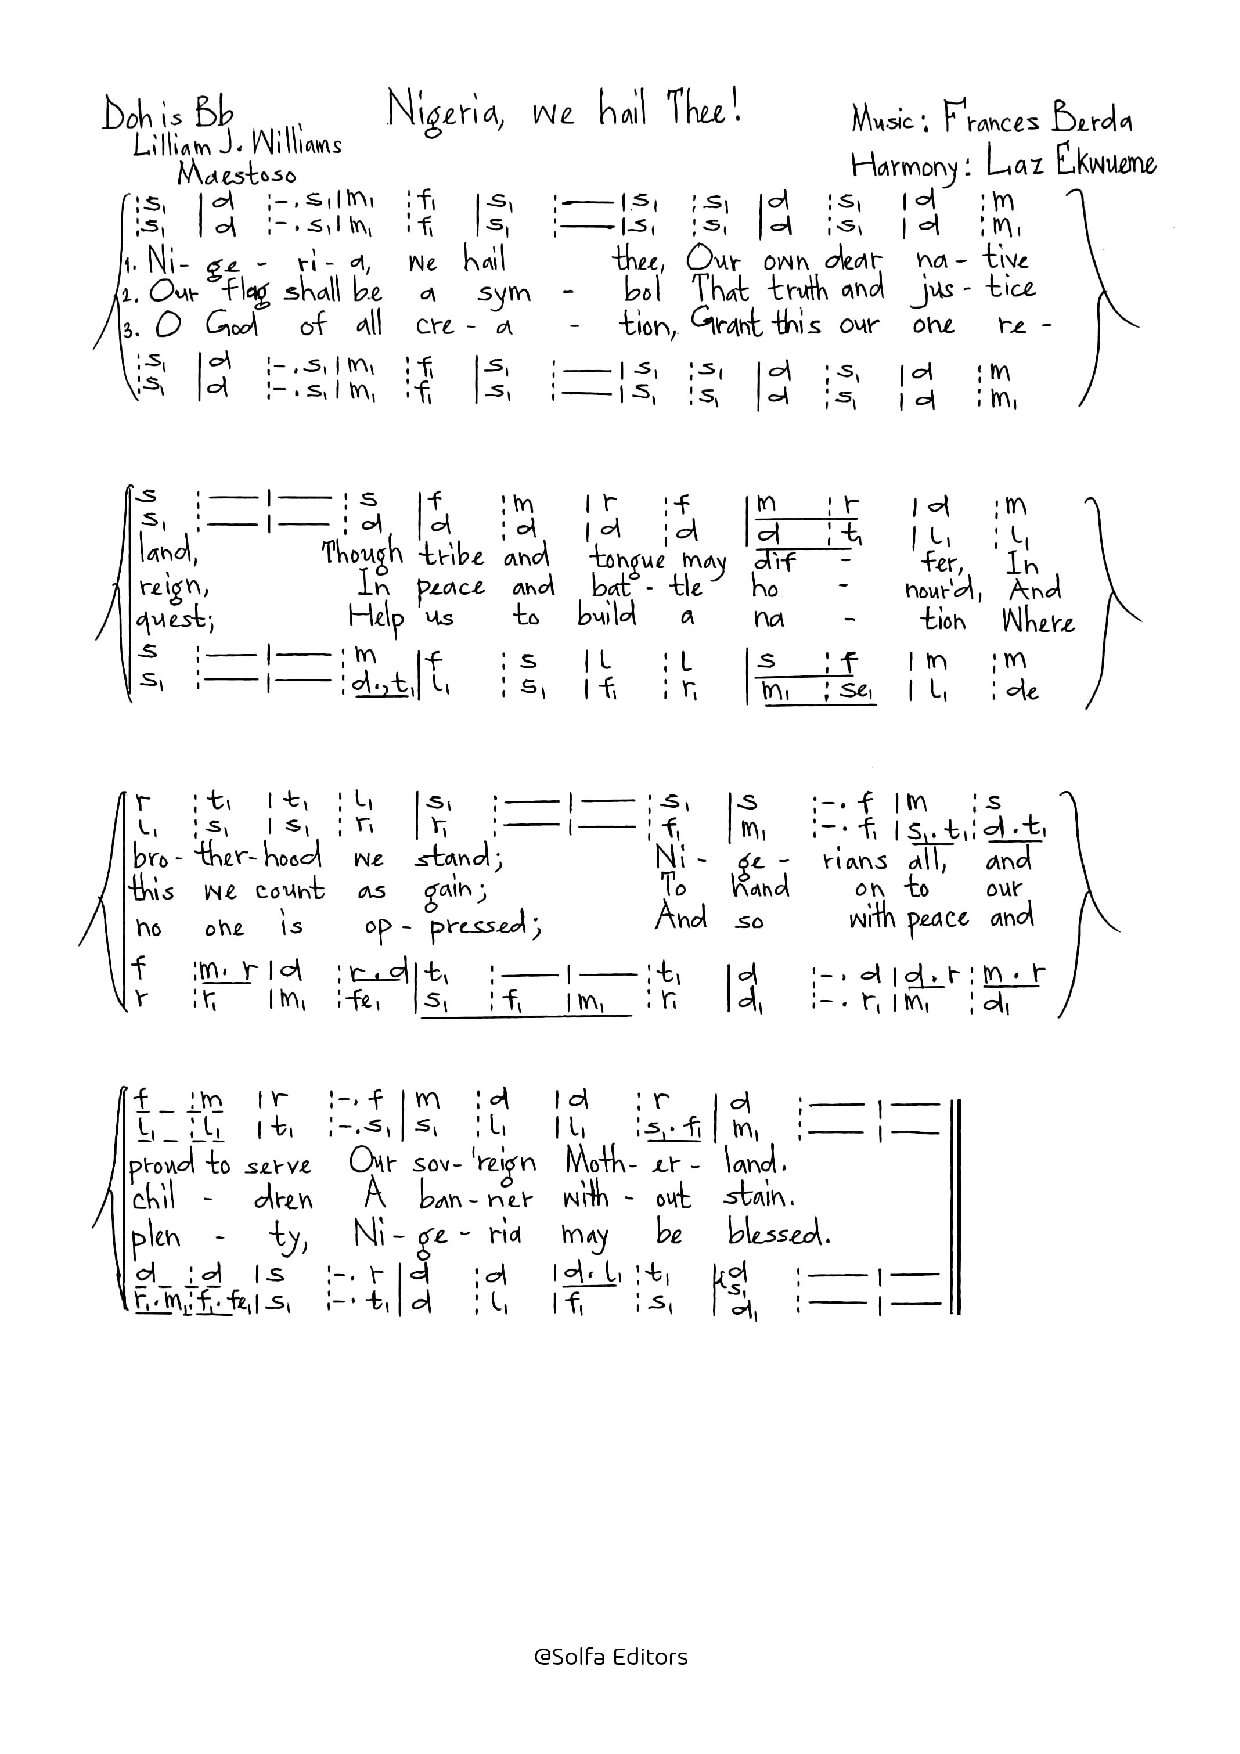 Doh is Bb Nigeria, we hail Thee! Music: Frances Berda
Lilliam J. Williams
Maestoso Harmony: Laz Ekwueme
:s₁ |d :-.s₁|m₁ :f₁ |s₁ :—|s₁ :s₁ |d :s₁ |d :m
:s₁ |d :-.s₁|m₁ :f₁ |s₁ :—|s₁ :s₁ |d :s₁ |d :m₁
1. Ni- ge - ri - a, we hail thee, Our own dear na - tive
2. Our flag shall be a sym - bol That truth and jus - tice
3. O God of all cre - a - tion, Grant this our one re -
:s₁ |d :-.s₁|m₁ :f₁ |s₁ :—|s₁ :s₁ |d :s₁ |d :m
:s₁ |d :-.s₁|m₁ :f₁ |s₁ :—|s₁ :s₁ |d :s₁ |d :m₁
s :—|— :s |f :m |r :f |m :r |d :m
s₁ :—|— :d |d :d |d :d |d :t₁ |l₁ :l₁
land, Though tribe and tongue may dif - fer, In
reign, In peace and bat - tle ho - nour'd, And
quest; Help us to build a na - tion Where
s :—|— :m |f :s |l :l |s :f |m :m
s₁ :—|— :d.,t₁|l₁ :s₁ |f₁ :r₁ |m₁ :se₁ |l₁ :de
r :t₁ |t₁ :l₁ |s₁ :—|— :s₁ |s :-.f |m :s
l₁ :s₁ |s₁ :r₁ |r₁ :—|— :f₁ |m₁ :-.f₁ |s₁.t₁:d.t₁
bro - ther-hood we stand; Ni - ge - rians all, and
this we count as gain; To hand on to our
no one is op - pressed; And so with peace and
f :m.r |d :r.d|t₁ :—|— :t₁ |d :-.d |d.r :m.r
r :r₁ |m₁ :fe₁ |s₁ :f₁ |m₁ :r₁ |d₁ :-.r₁ |m₁ :d₁
f_:m |r :-.f |m :d |d :r |d :—|—
l₁_:l₁ |t₁ :-.s₁ |s₁ :l₁ |l₁ :s₁.f₁ |m₁ :—|—
proud to serve Our sov-'reign Moth- er - land.
chil - dren A ban - ner with - out stain.
plen - ty, Ni - ge - ria may be blessed.
d_:d |s :-.r |d :d |d.l₁ :t₁ |d :—|—
s₁
r₁.m₁:f₁.fe₁|s₁ :-.t₁ |d :l₁ |f₁ :s₁ |d₁ :—|—
@Solfa Editors